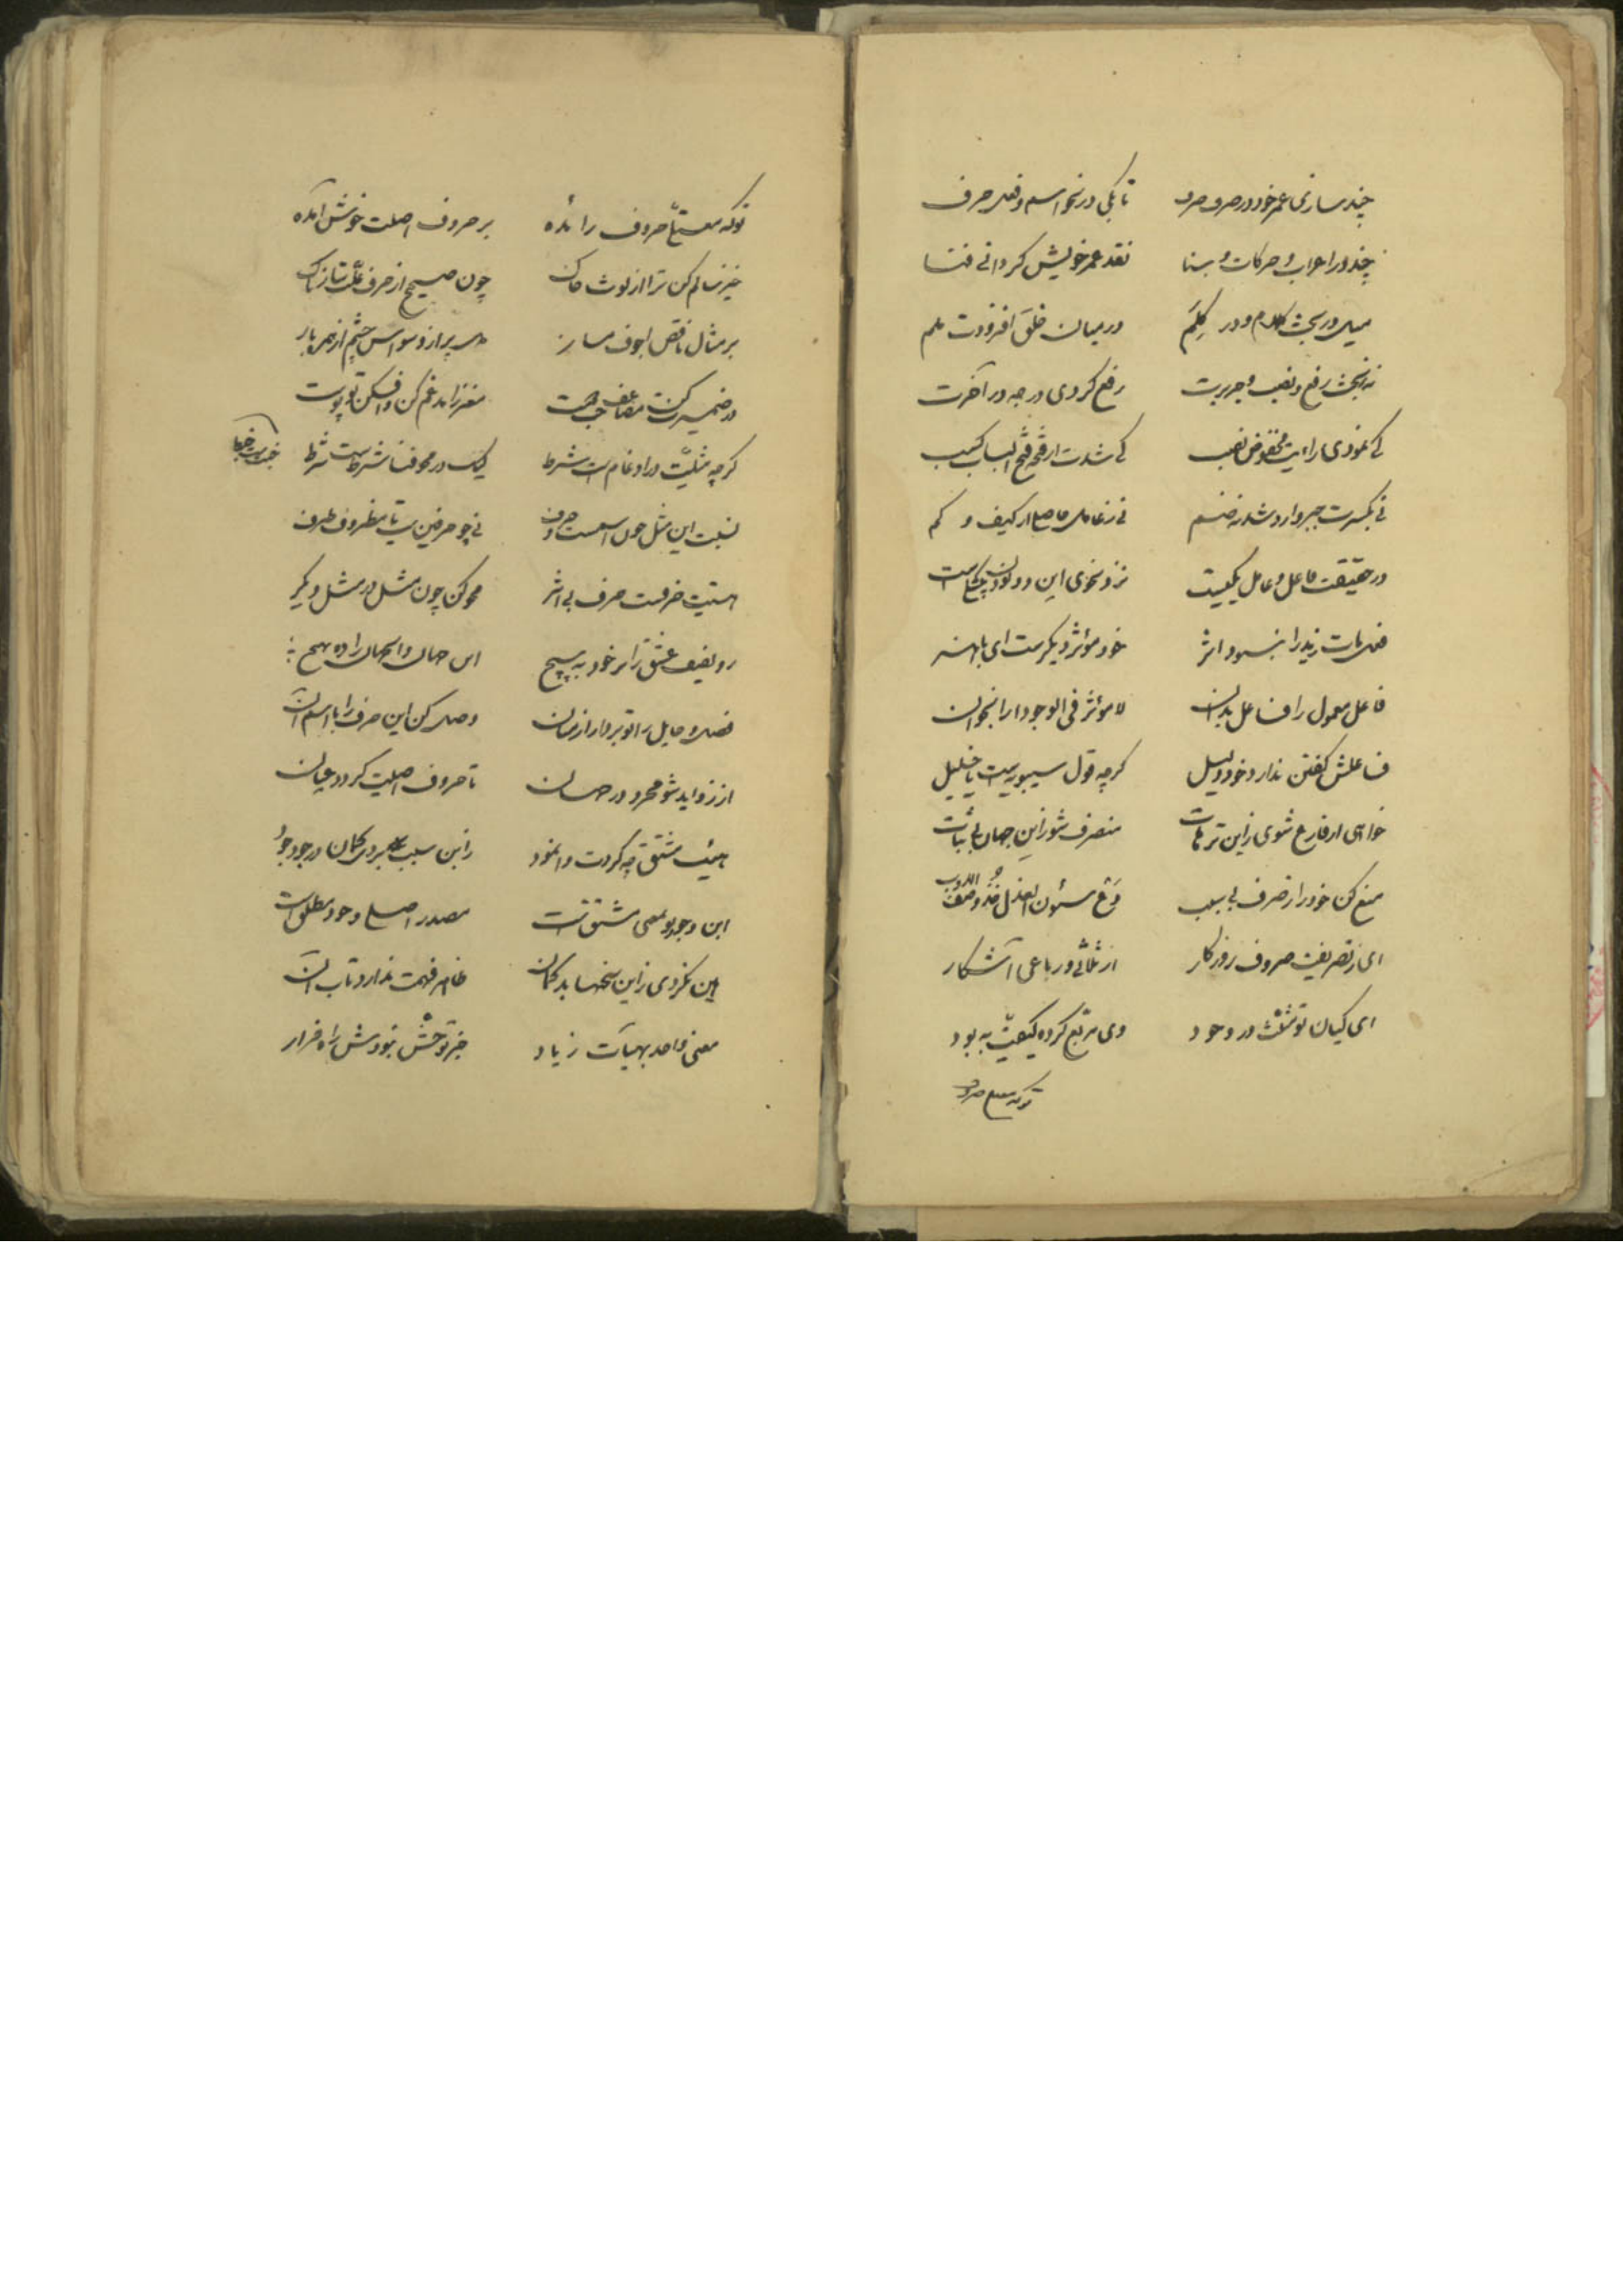 چند سازی عمر خود در صرف صرف تا بکی در نحو اسم و فعل حرف
چند در اعراب و حرکات و بنا نقد عمر خویش کردانی فنا
میل در بحث کلام و در کلم در میان خلق افزودت
بحث رفع و نصب و جر رفع کردی درجه در آخرت
کی نمودی رایت مخفوض نصب کی شدت از فتحه فتح الباب کسب
نی بکسرت جبر وارد شد نه ضم نی ز عامل حاصل از کیف و کم
در حقیقت فاعل و عامل یکیست نزد نحوی این دو
فعل مات زید را نبود اثر خود مؤثر دیکرست ای باهنر
فاعل معمول را فاعل بدان لا مؤثر فی الوجود را بخوان
فاعلش کفتن ندارد خود دلیل کرچه قول سیبویه است یا خلیل
خواهی ار فارغ شوی زاین ترهات منصرف شو زاین جهان بی ثبات
منع کن خود را ز صرف بی سبب دع
ای ز تصریف صروف روزکار از ثلاثی و رباعی آشکار
ای کیان تو مثلث در وجود وی مربع کرده کیفیت به بود
توکه
توکه حروف زائده بر حروف اصلت خوش آمده
خیز سالم کن ترا از لوث خاک چون صحیح از حرف علت تابناک
بر مثال ناقص اجوف مساز پر از وسواس چشم از
در ضمیرت مضاعف مغز را مدغم کن و افکن تو پوست
کرچه مثلیت در ادغام است شرط لیک در محو فنا شرط است شرط
نسبت این مثل چون اسمست و حرف نی چو حرفین است یا مظروف ظرف
هستیت حرفست حرف بی اثر محو کن چون مثل در مثل دیکر
رو لفیف عشق را بر خود به پیچ این جهان و آنجهان را ده بهیچ
فصل و حایل را تو بردار از میان وصل کن این حرف را با اسم آن
از زواید شو مجرد در جهان تا حروف اصلیت کردد عیان
هیئت مشتق چه کردت وانمود زاین سبب بردی کمان در جود جود
این وجود معنی مشتق است مصدر اصلی وجود مطلق است
هین نکردی زاین سخنها بدکمان ظاهر فهمت ندارد تاب آن
معنی واحد بهیآت زیاد جز توحش نبودش راه فرار